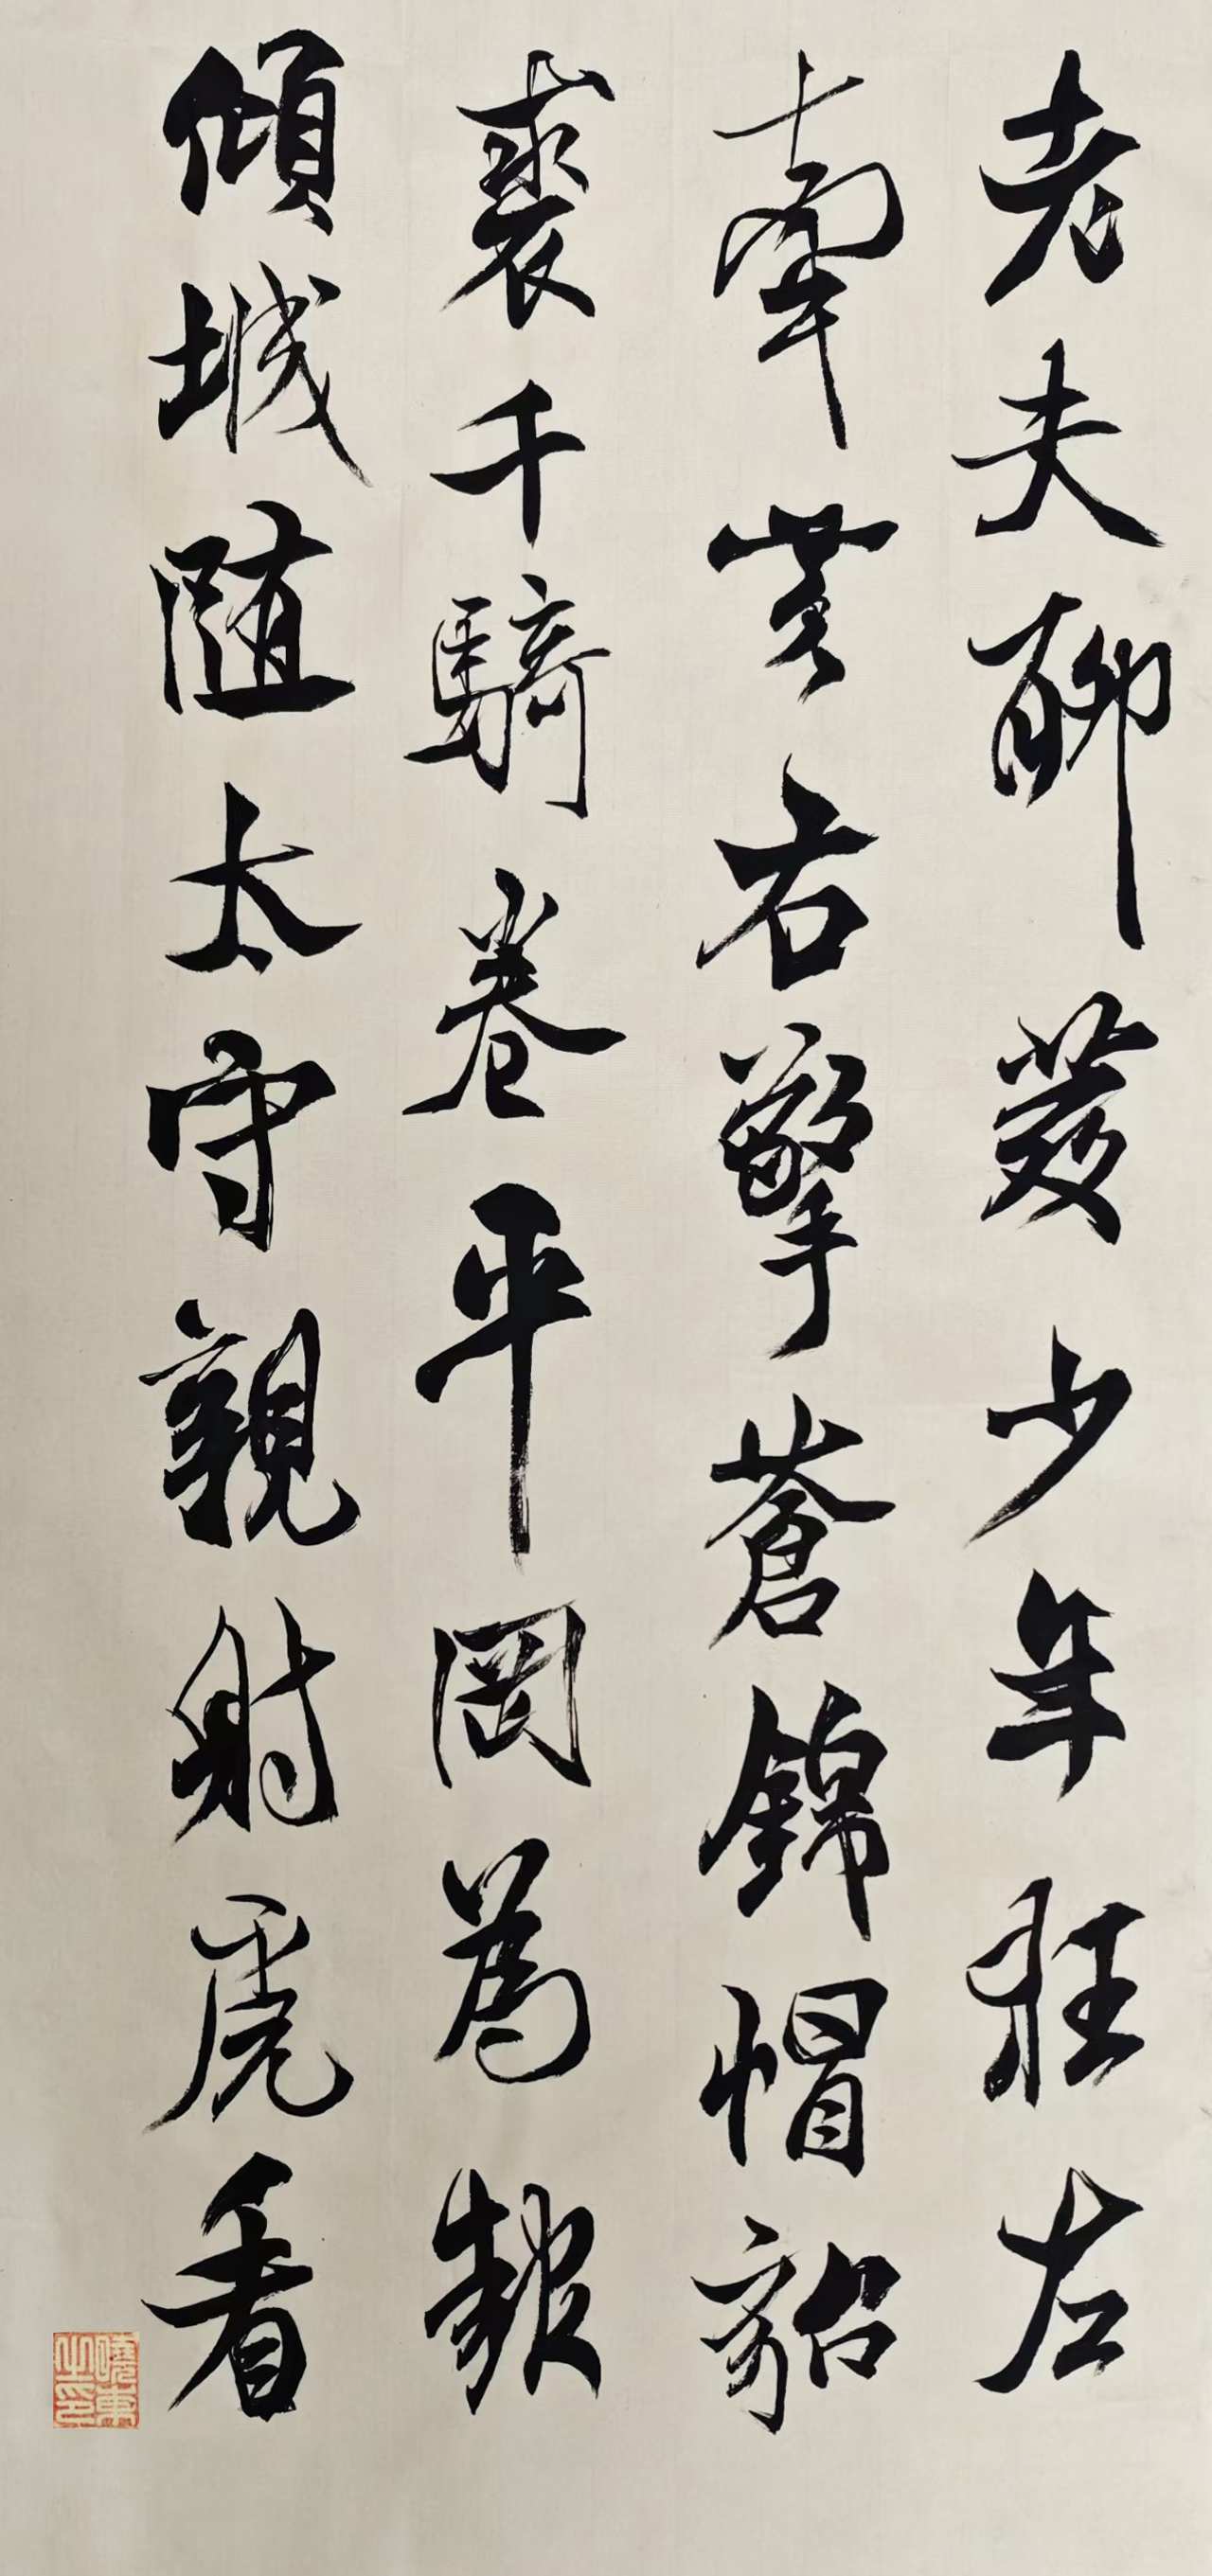 老夫聊發少年狂左
牽黄右擎蒼錦帽貂
裘千騎卷平岡為報
傾城随太守親射虎看
曉東之印